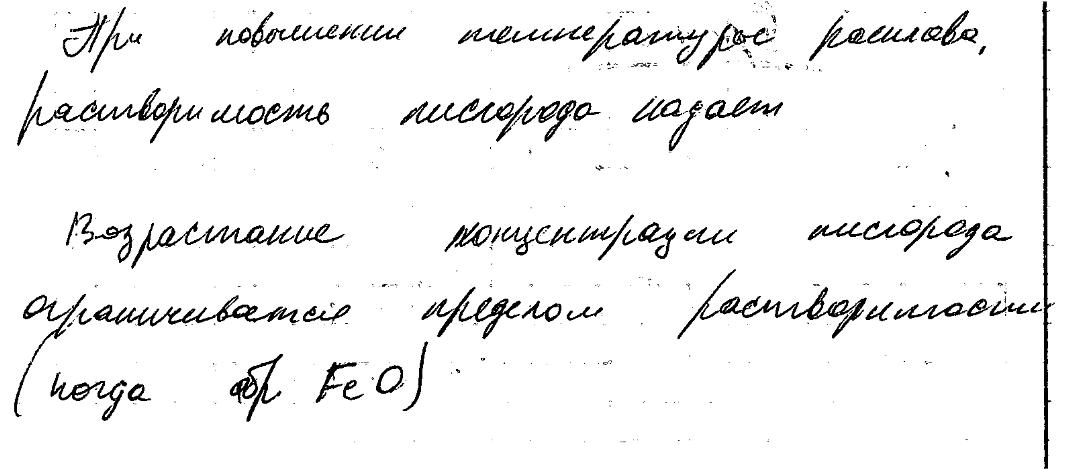 При повышении температуры расплава,
растворимость кислорода падает
Возрастание концентрации кислорода
ограничивается пределом растворимости
(когда обр. FeO)